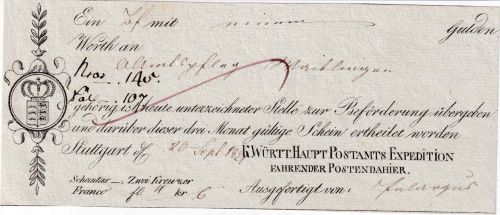 Ein Zf mit einem Gulden
Werth an
Amtspfleg Waiblingen
Nro. 145.
Fol. 107
gehörig ist heute unterzeichneter Stelle zur Beförderung übergeben
und darüber dieser drei Monat gültige Schein ertheilt worden
Stuttgart d 20 Sept
K. WÜRTT. HAUPT POSTAMTS EXPEDITION
FAHRENDER POSTEN DAHIER.
Scheintax — Zwei Kreuzer
Franco fl kr 6 Ausgefertigt von: